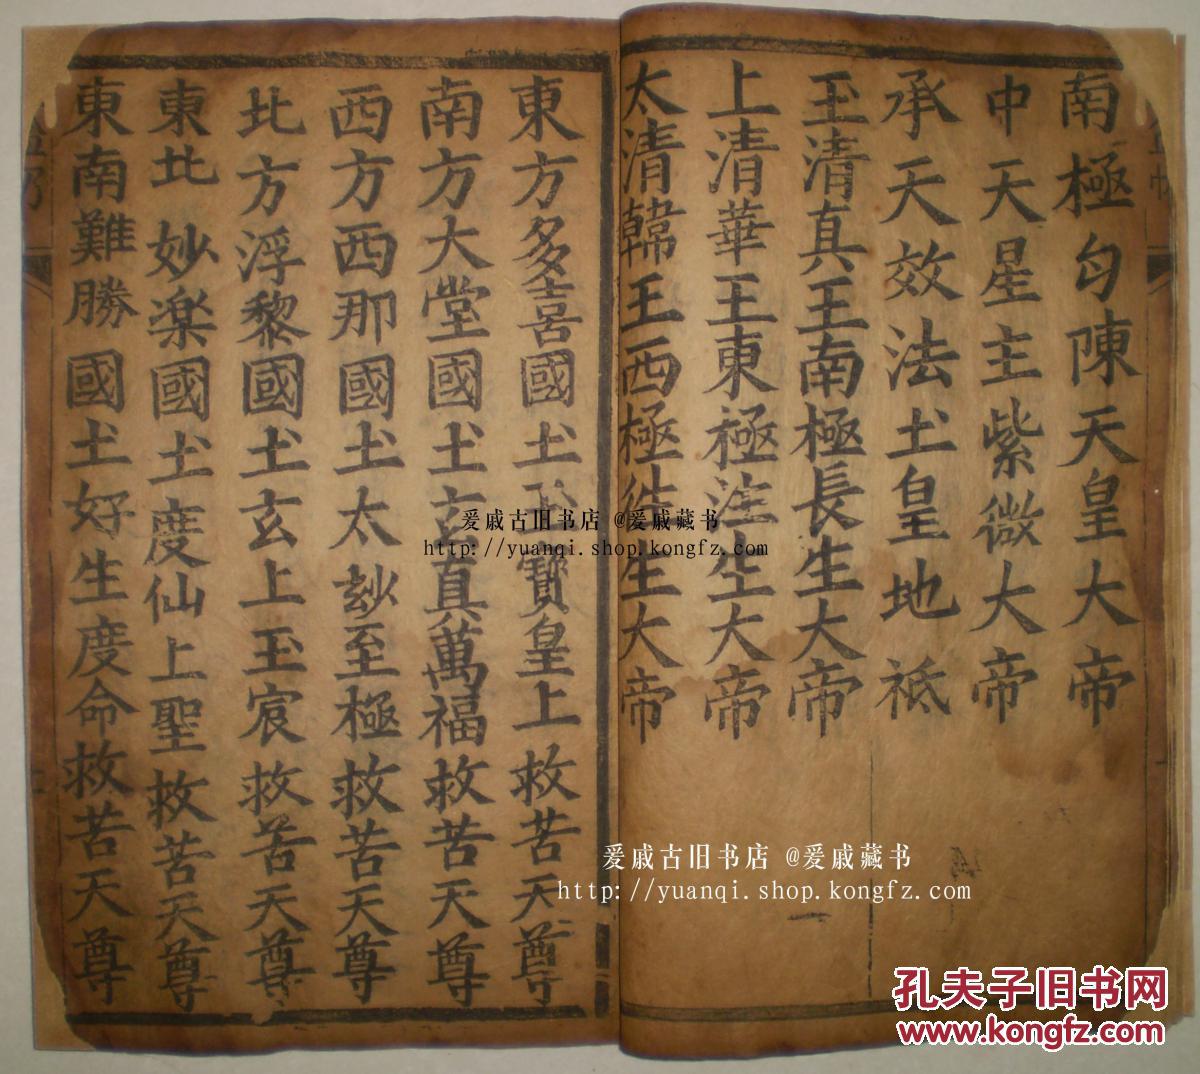 南極勾陳天皇大帝
中天星主紫微大帝
承天效法土皇地祗
玉清真王南極長生大帝
上清華王東極注生大帝
太清韓王西極注生大帝
東方多喜國土玉寶皇上救苦天尊
南方大堂國土玄真萬福救苦天尊
西方西那國土太玅至極救苦天尊
北方浮黎國土玄上玉宸救苦天尊
東北妙楽國土度仙上聖救苦天尊
東南難勝國土好生度命救苦天尊
爱戚古旧书店 @爱戚藏书
http://yuanqi.shop.kongfz.com
爱戚古旧书店 @爱戚藏书
http://yuanqi.shop.kongfz.com
孔夫子旧书网
www.kongfz.com